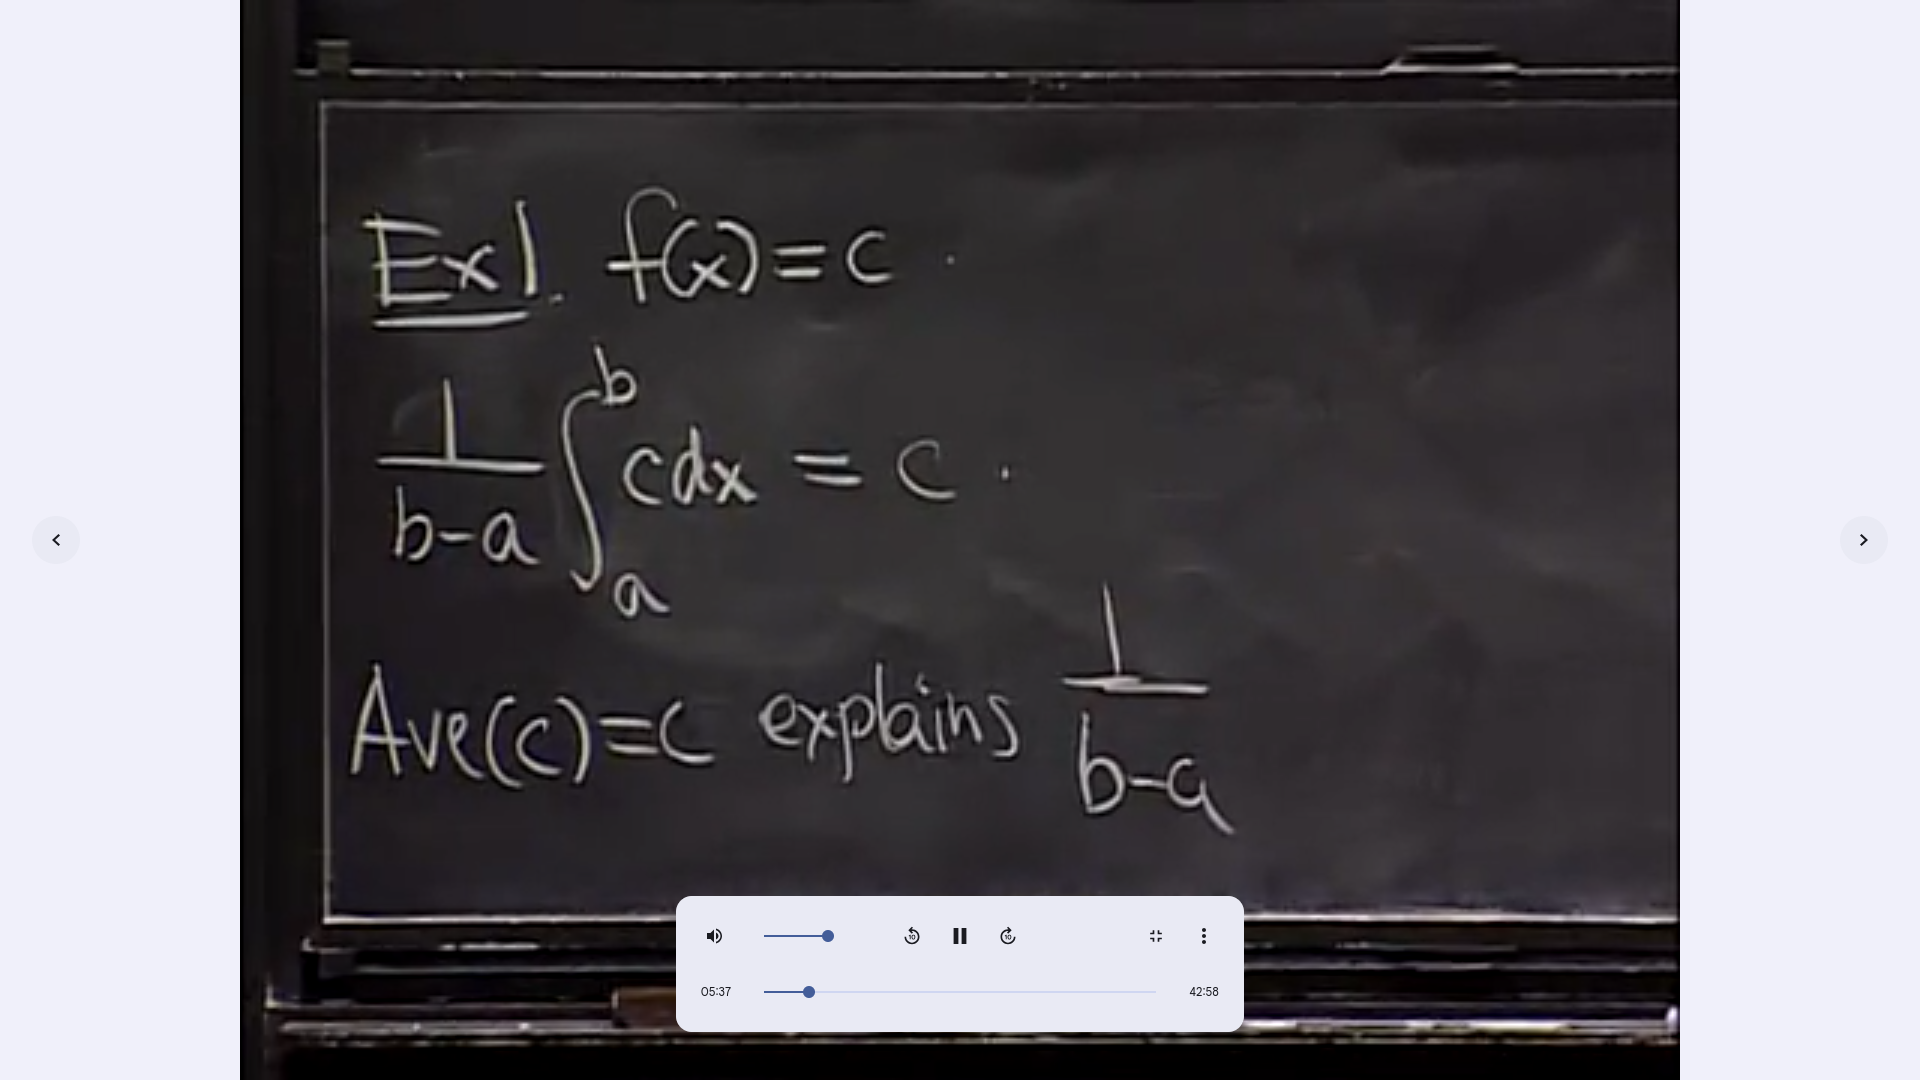 Ex 1. f(x) = c .
1/(b-a) ∫_a^b c dx = c .
Ave(c) = c explains 1/(b-a)
10 10
05:37 42:58